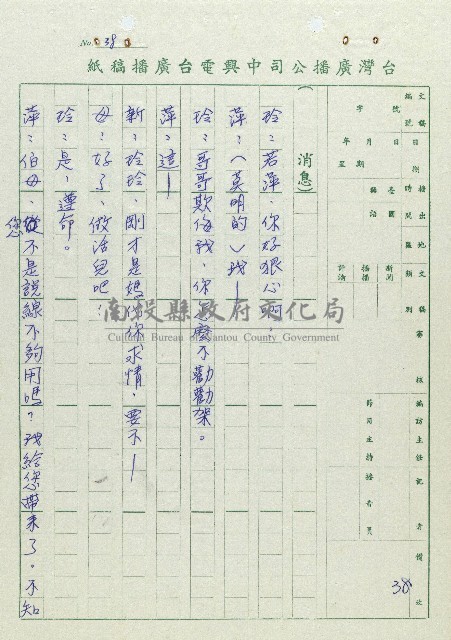 No. 38
台灣廣播公司中興電台廣播稿紙
文稿
編號
字
號
年
月
日
期
至
播出時間
地區
文類別
國語
台語
新聞
播
評論
稿審核
編訪主任
記者
備註
節目主持
播音員
38
(消息)
玲:若萍,你好狠心啊!
萍:(莫明的)我—
玲:哥哥欺侮我,你怎麼不勸勸架。
萍:這—
新:玲玲,剛才是媽代你求情,要不—
母:好了,做活兒吧!
玲:是,遵命。
萍:伯母,您不是說線不夠用嗎?我給您帶來了。不知
南投縣政府文化局
Cultural Bureau of Nantou County Government